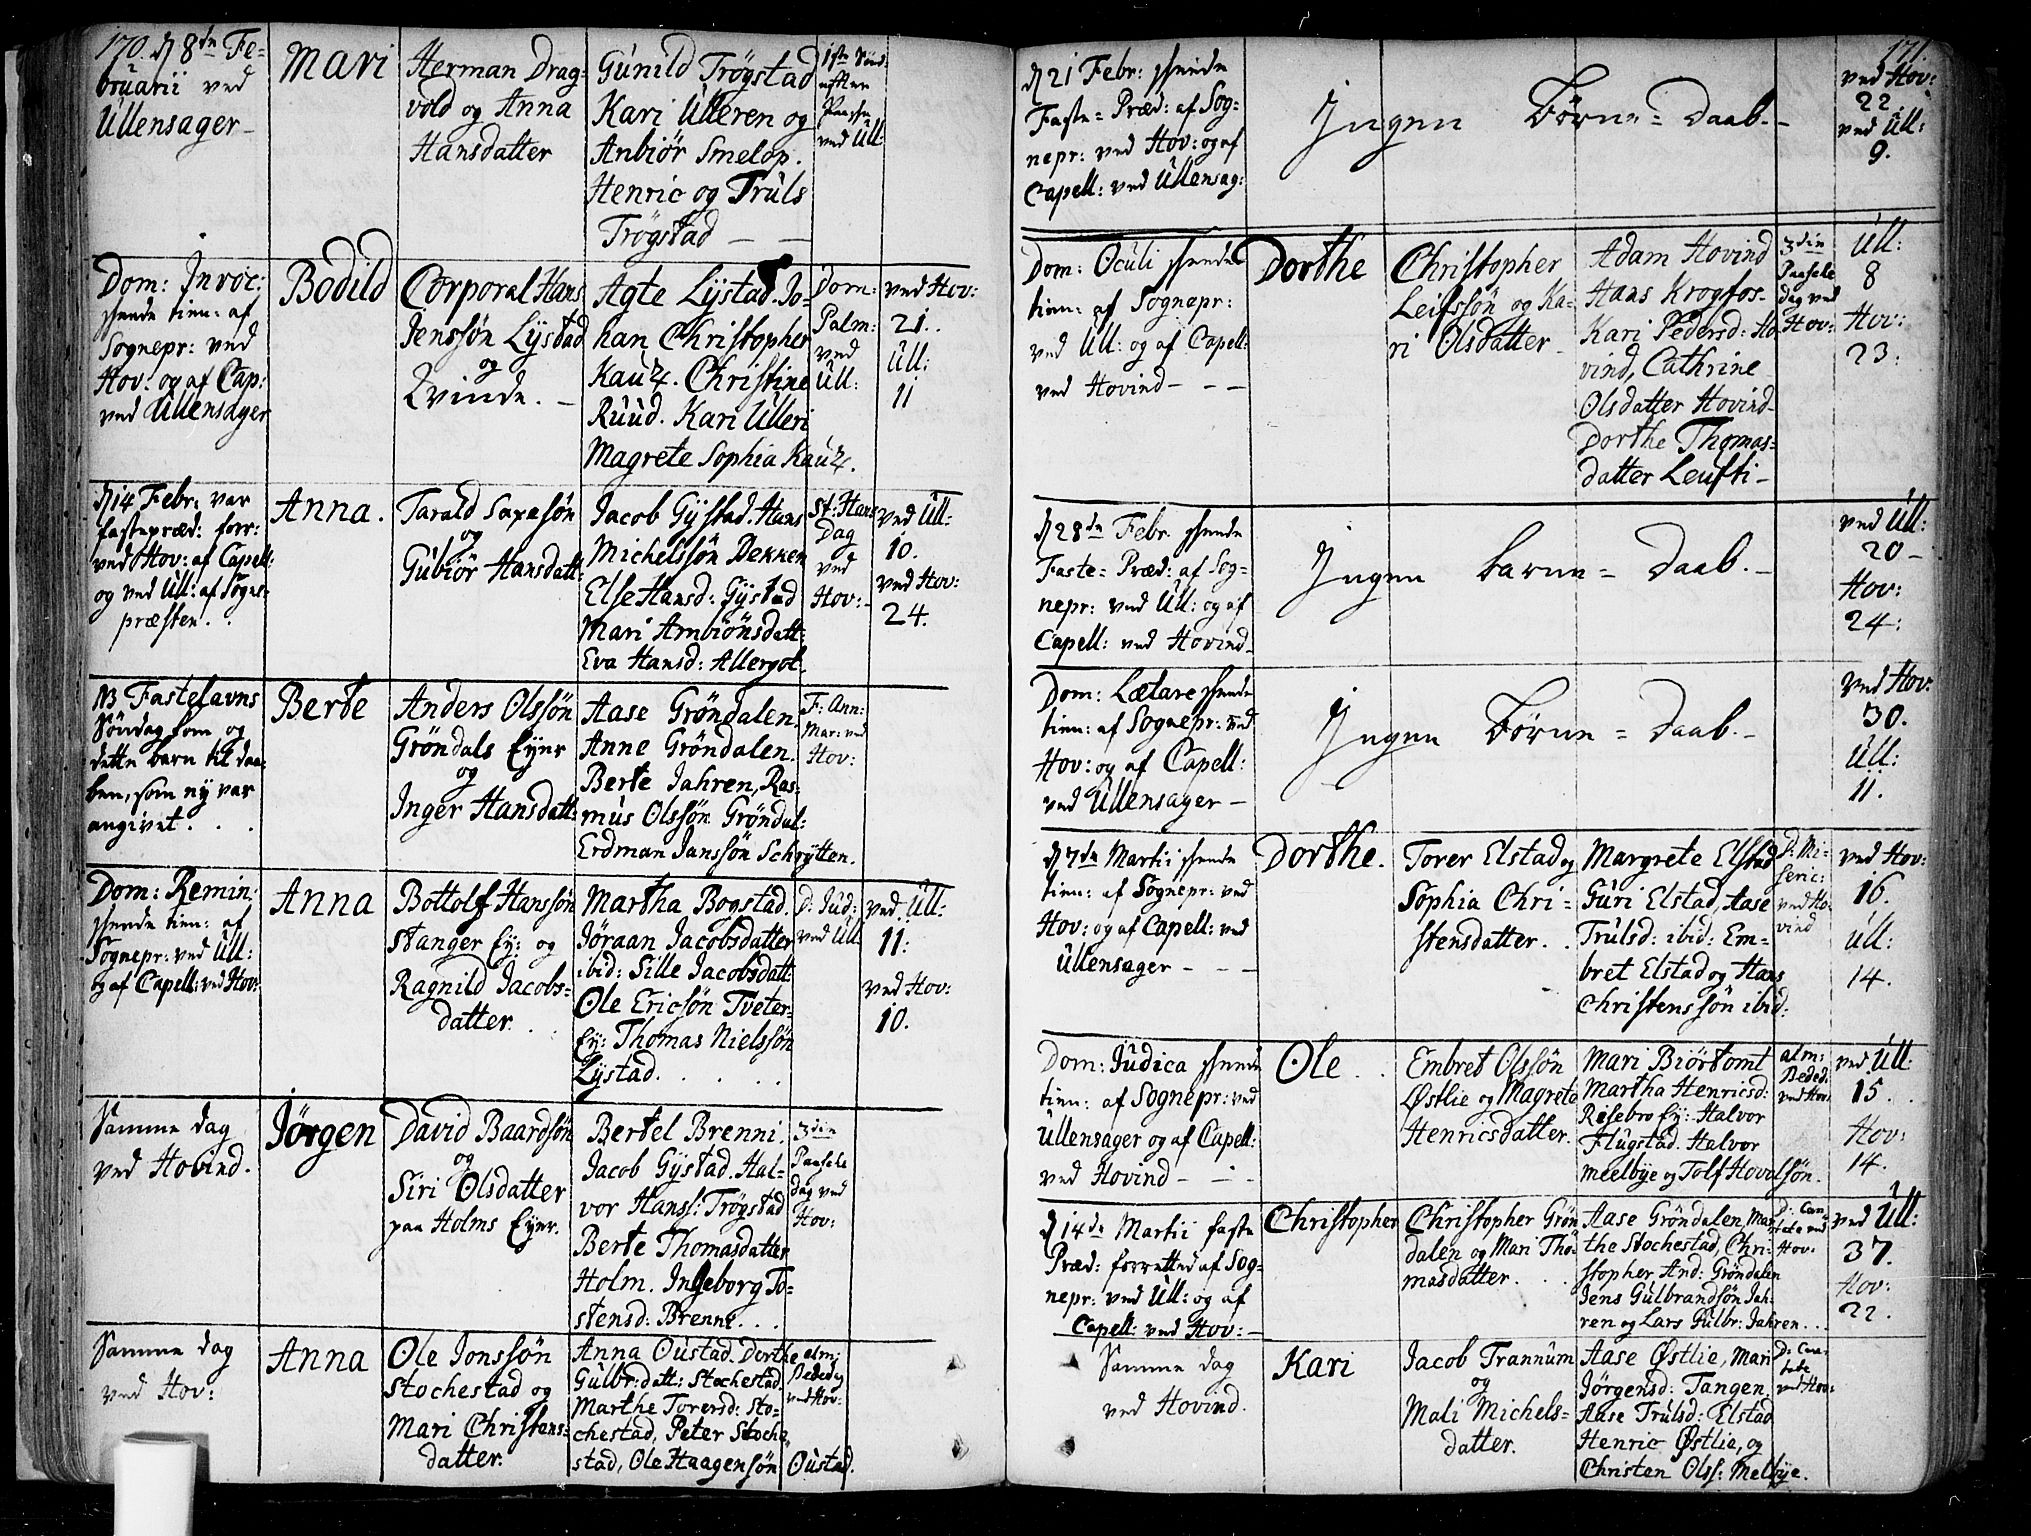 170. d 8de Fe=
bruarii ved
Ullensager_
Mari
Herman Drag=
vold og Anna
Hansdatter
Gunild Trøgstad
Kari Ulleren og
Anbiør Smelop.
Henric og Truls
Trøgstad _ _
1ste Sönd
efter
Paaske
ved Ull:
Dom: Invoc:
tien: af
Sognepr: ved
Hov: og af Cap:
ved Ullensager
Bodild
Corporal Hans
Jenssön Lystad
og
Qvinde. _
Agte Lystad. Jo=
han Christopher
Kautz. Christine
Ruud. Kari Ulleri
Magrete Sophia Kautz.
Dom:
Palm:
ved
Ull:
ved Hov:
21.
Ull:
11
d 14 Febr: var
fastepræd: forr:
ved Hov: af Capell:
og ved Ull: af Sogne-
præsten. .
Anna.
Tarald Saxesön
og
Gubiör Hansdatt:
Jacob Gystad. Hans
Michelssön Dekken
Else Hansd: Gystad
Mari Ambiönsdatt:
Eva Hansd: Allergot
St: Hans
Dag
ved
Hov:
ved Ull:
10.
ved Hov:
24.
NB Fastelavns
Söndag kom og
dette barn til daa=
ben, som ey var
angivet . . .
Berte
Anders Olssön
Gröndals Eyer
og
Inger Hansdatt:
Aase Gröndalen
Anne Gröndalen.
Berte Jahren, Ras=
mus Olssön Gröndal:
Erdman Janssön Schrytten.
F: Ann:
Mar: ved
Hov:
Dom: Remin:
tien: af
Sognepr: ved Ull:
og af Capell: ved Hov:
Anna
Bottolf Hanssön
Stanger Ey: og
Ragnild Jacobs=
datter.
Martha Bogstad.
Jöraan Jacobsdatter
ibid: Sille Jacobsdatt
Ole Ericsön Tveter=
Ey: Thomas Nielssön
Lystad. . . .
D: Jud:
ved Ull
ved Ull:
11:
ved Hov:
10.
Samme dag
ved Hovind.
Jörgen
David Baardsön
og
Siri Olsdatter
paa Holms Eyer.
Bertel Brenni.
Jacob Gystad. Hal=
vor Hanss: Trøgstad
Berte Thomasdatter
Holm. Ingeborg To=
stensd: Brenni. . .
3die
Paaske
dag ved
Hov:
Samme dag
ved Hov:
Anna
Ole Jonssön
Stochestad og
Mari Christens=
datter.
Anna Oustad. Dorthe
Gulbr: datt: Stochestad
Marthe Torersd: Sto=
chestad, Peter Stoche
stad, Ole Haagensön Oustad.
alm:
Bededag
ved Hov:
171
d 21 Febr: skeede
Faste= Præd: af Sog=
nepr: ved Hov: og af
Capell: ved Ullensag:
Ingen Börne= Daab._
ved Hov:
22
ved Ull:
9.
Dom: Oculi skeede
tien: af Sognepr:
ved Ull: og af Capell:
ved Hovind _ _ _
Dorthe
Christopher
Leifssön og Ka=
ri Olsdatter_
Adam Hovind
Hans Krogfos_
Kari Pedersd: Ho
vind, Cathrine
Olsdatter Hovind_
Dorthe Thomas=
datter Leufti_
3die
Paaske
dag ved
Hov:
Ull:
8
Hov:
23.
d 28de Febr. skeede
Faste= Præd: af Sog=
nepr: ved Ull: og af
Capell: ved Hovind_
Ingen barne= Daab._
ved Ull:
20_
Hov:
24:
Dom: Lætare skeede
tien: af Sognepr: ved
Hov: og af Capell:
ved Ullensager _
Ingen Börne= Daab._
ved Hov:
30.
Ull:
11.
d 7de Martii skeede
tien: af Sognepr: ved
Hov: og af Capell: ved
Ullensager _ _ _
Dorthe.
Torer Elstad og
Sophia Chri=
stensdatter. .
Margrete Elstad
Guri Elstad, Aase
Trulsd: ibid: Em=
bret Elstad og Hans
Christenssön ibid:
D: Mi-
seric:
ved Ho=
vind
ved Hov:
16.
Ull:
14.
Dom: Judica skeede
tien: af Sognepr: ved
Ullensager og af Capell:
ved Hovind _ _ _
Ole . .
Embret Olssön
Østlie og Magrete
Henricsdatter.
Mari Biörtomt
Martha Henricsd:
Risebro Ey: Halvor
Flugstad. Halvor
Meelbye og Tolf Hovelsön.
alm:
Beded:
ved Hov:
ved Ull
15 . .
Hov:
14.
d 14de Martii faste
Præd: forrettet af Sog=
nepr: ved Ull: og af
Capell: ved Hov: _
Christopher
Christopher Grön
dalen og Mari Tho=
masdatter. . .
Aase Gröndalen, Mar
the Stochestad, Chri=
stopher And: Gröndalen
Jens Gulbrandsön Jah=
ren og Lars Gulbr: Jahren...
D: Can
tate ved
Hov:
ved Ull:
37.
Hov:
22.
Samme dag
ved Hovind.
Kari
Jacob Trannum
og
Mali Michels=
datter.
Aase Østlie, Mari
Jörgensd: Tangen.
Aase Trulsd: Elstad
Henric Østlie, og
Christen Olss: Melbye.
D: Can
tate
ved Hov: